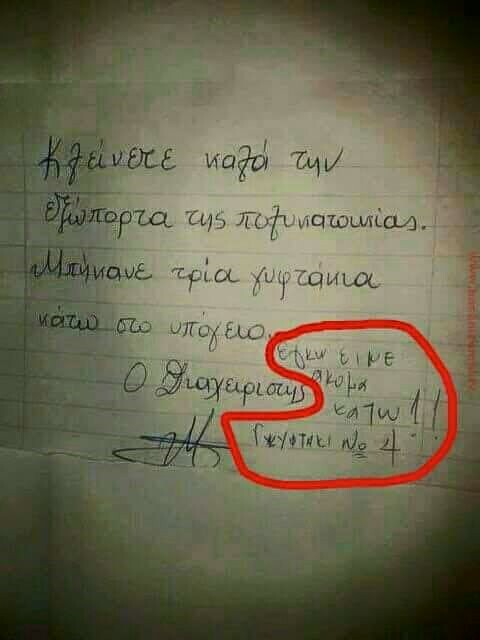 Κλείνετε καλά την
εξώπορτα της πολυκατοικίας.
Μπήκανε τρία γυφτάκια
κάτω στο υπόγειο.
Ο Διαχειριστής
εγκω εινε
ακομα
κατω!!
Γκυφτακι Νο 4